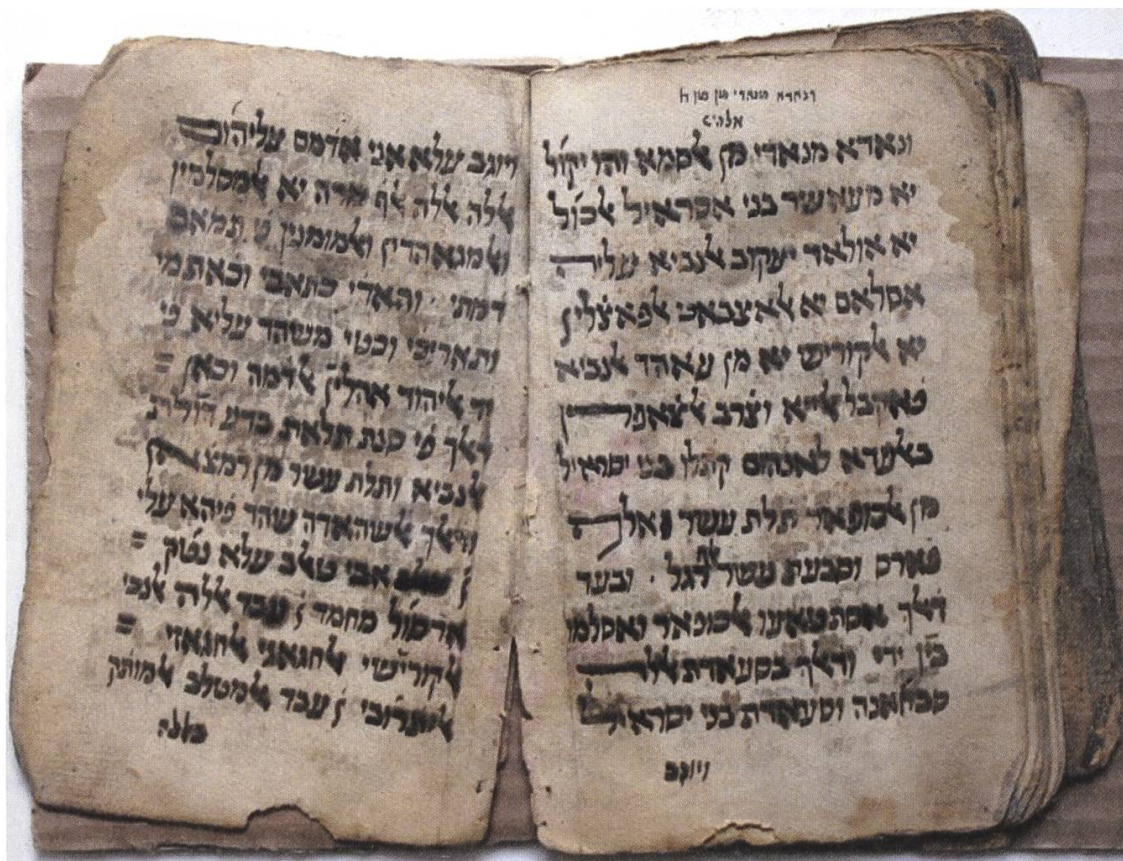 ונאדא מנאדי מן
ונאדא מנאדי מן אלסמא והו יקול
יא מעאשר בני אסראיל אלכול
יא אולאד יעקוב אלנביא עליה
אסלאם יא לאצבאט לפאצלין
יא לקוריש יא מן עאהד אלנביא
וצרב
באלעדא לאנהום קתלו בני ישראיל
מן אלכופאר תלת עשר ואלף
פארס וסבעת עשר אלף רגל ובעד
דאלך אסתטאעו אלכופאר ואסלמו
בין ידי ודאלך בסעאדת אללה
סבחאנה וסעאדת בני ישראיל
ויוגב
ויוגב עלא אני אדמם עליהום
אללה אללה אלף מרה יא אלמסלמין
אלמגאהדין ואלמומנין פי תמאם
דמתי והאדי כתאבי וכאתמי
ותאריכי וכטי משהד עליא פי
יד אליהוד אהלין אלדמה וכאן
דאלך פי סנת תלאת
אלנביא ותלת עשר מן רמצאן
ודאלך אלשהאדה שהד פיהא עלי
אבי טאלב עלא נטק
ארסול מחמד אבן עבד אללה אלנבי
אלקורישי אלחגאזי
אליתרובי אבן עבד אלמטלב